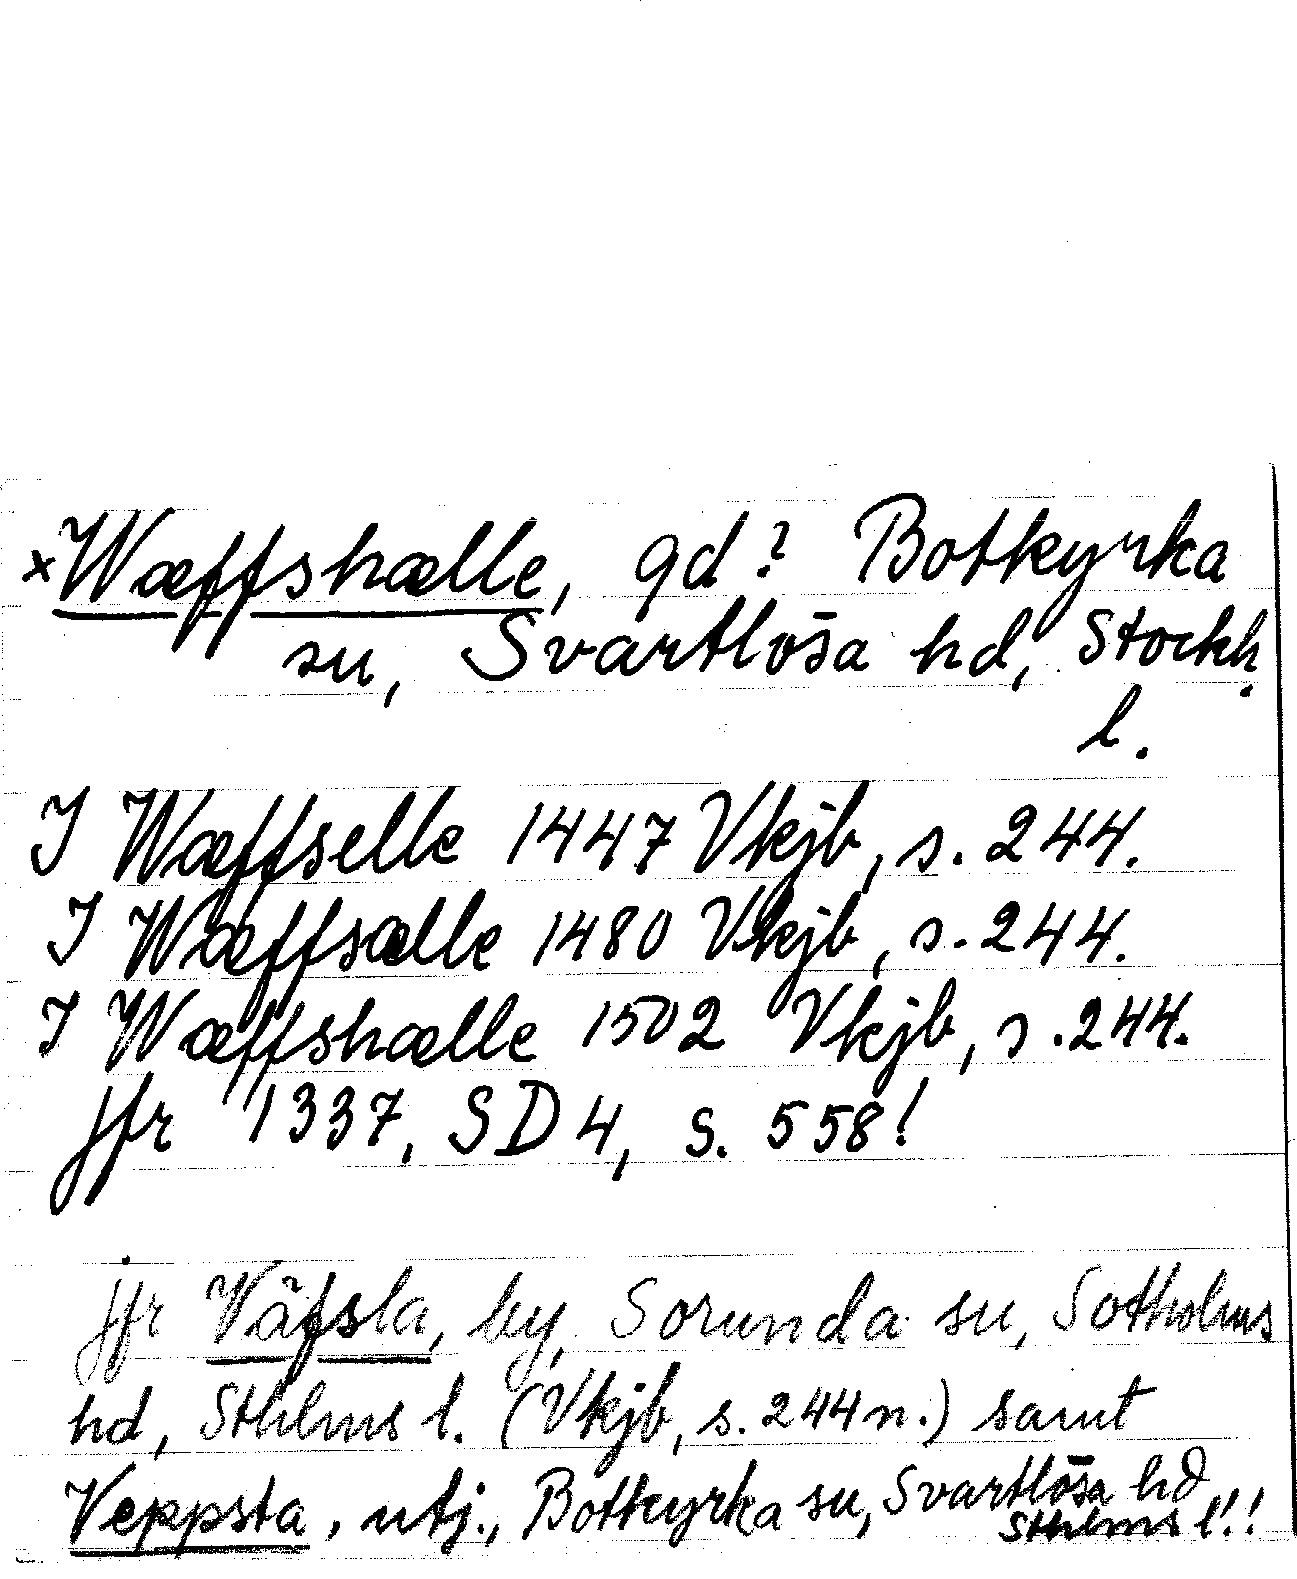 ×Wæffshælle, gd? Botkyrka
su, Svartlösa hd, Stockh.
l.
I Wæffselle 1447 Vkjb, s. 244.
I Wæffsælle 1480 Vkjb, s. 244.
I Wæffshælle 1502 Vkjb, s. 244.
jfr 1337, SD 4, s. 558!
jfr Väfsla, by, Sorunda su, Sotholms
hd, Sthlms l. (Vkjb, s. 244 n.) samt
Veppsta, utj., Botkyrka su, Svartlösa hd,
Sthlms l!!